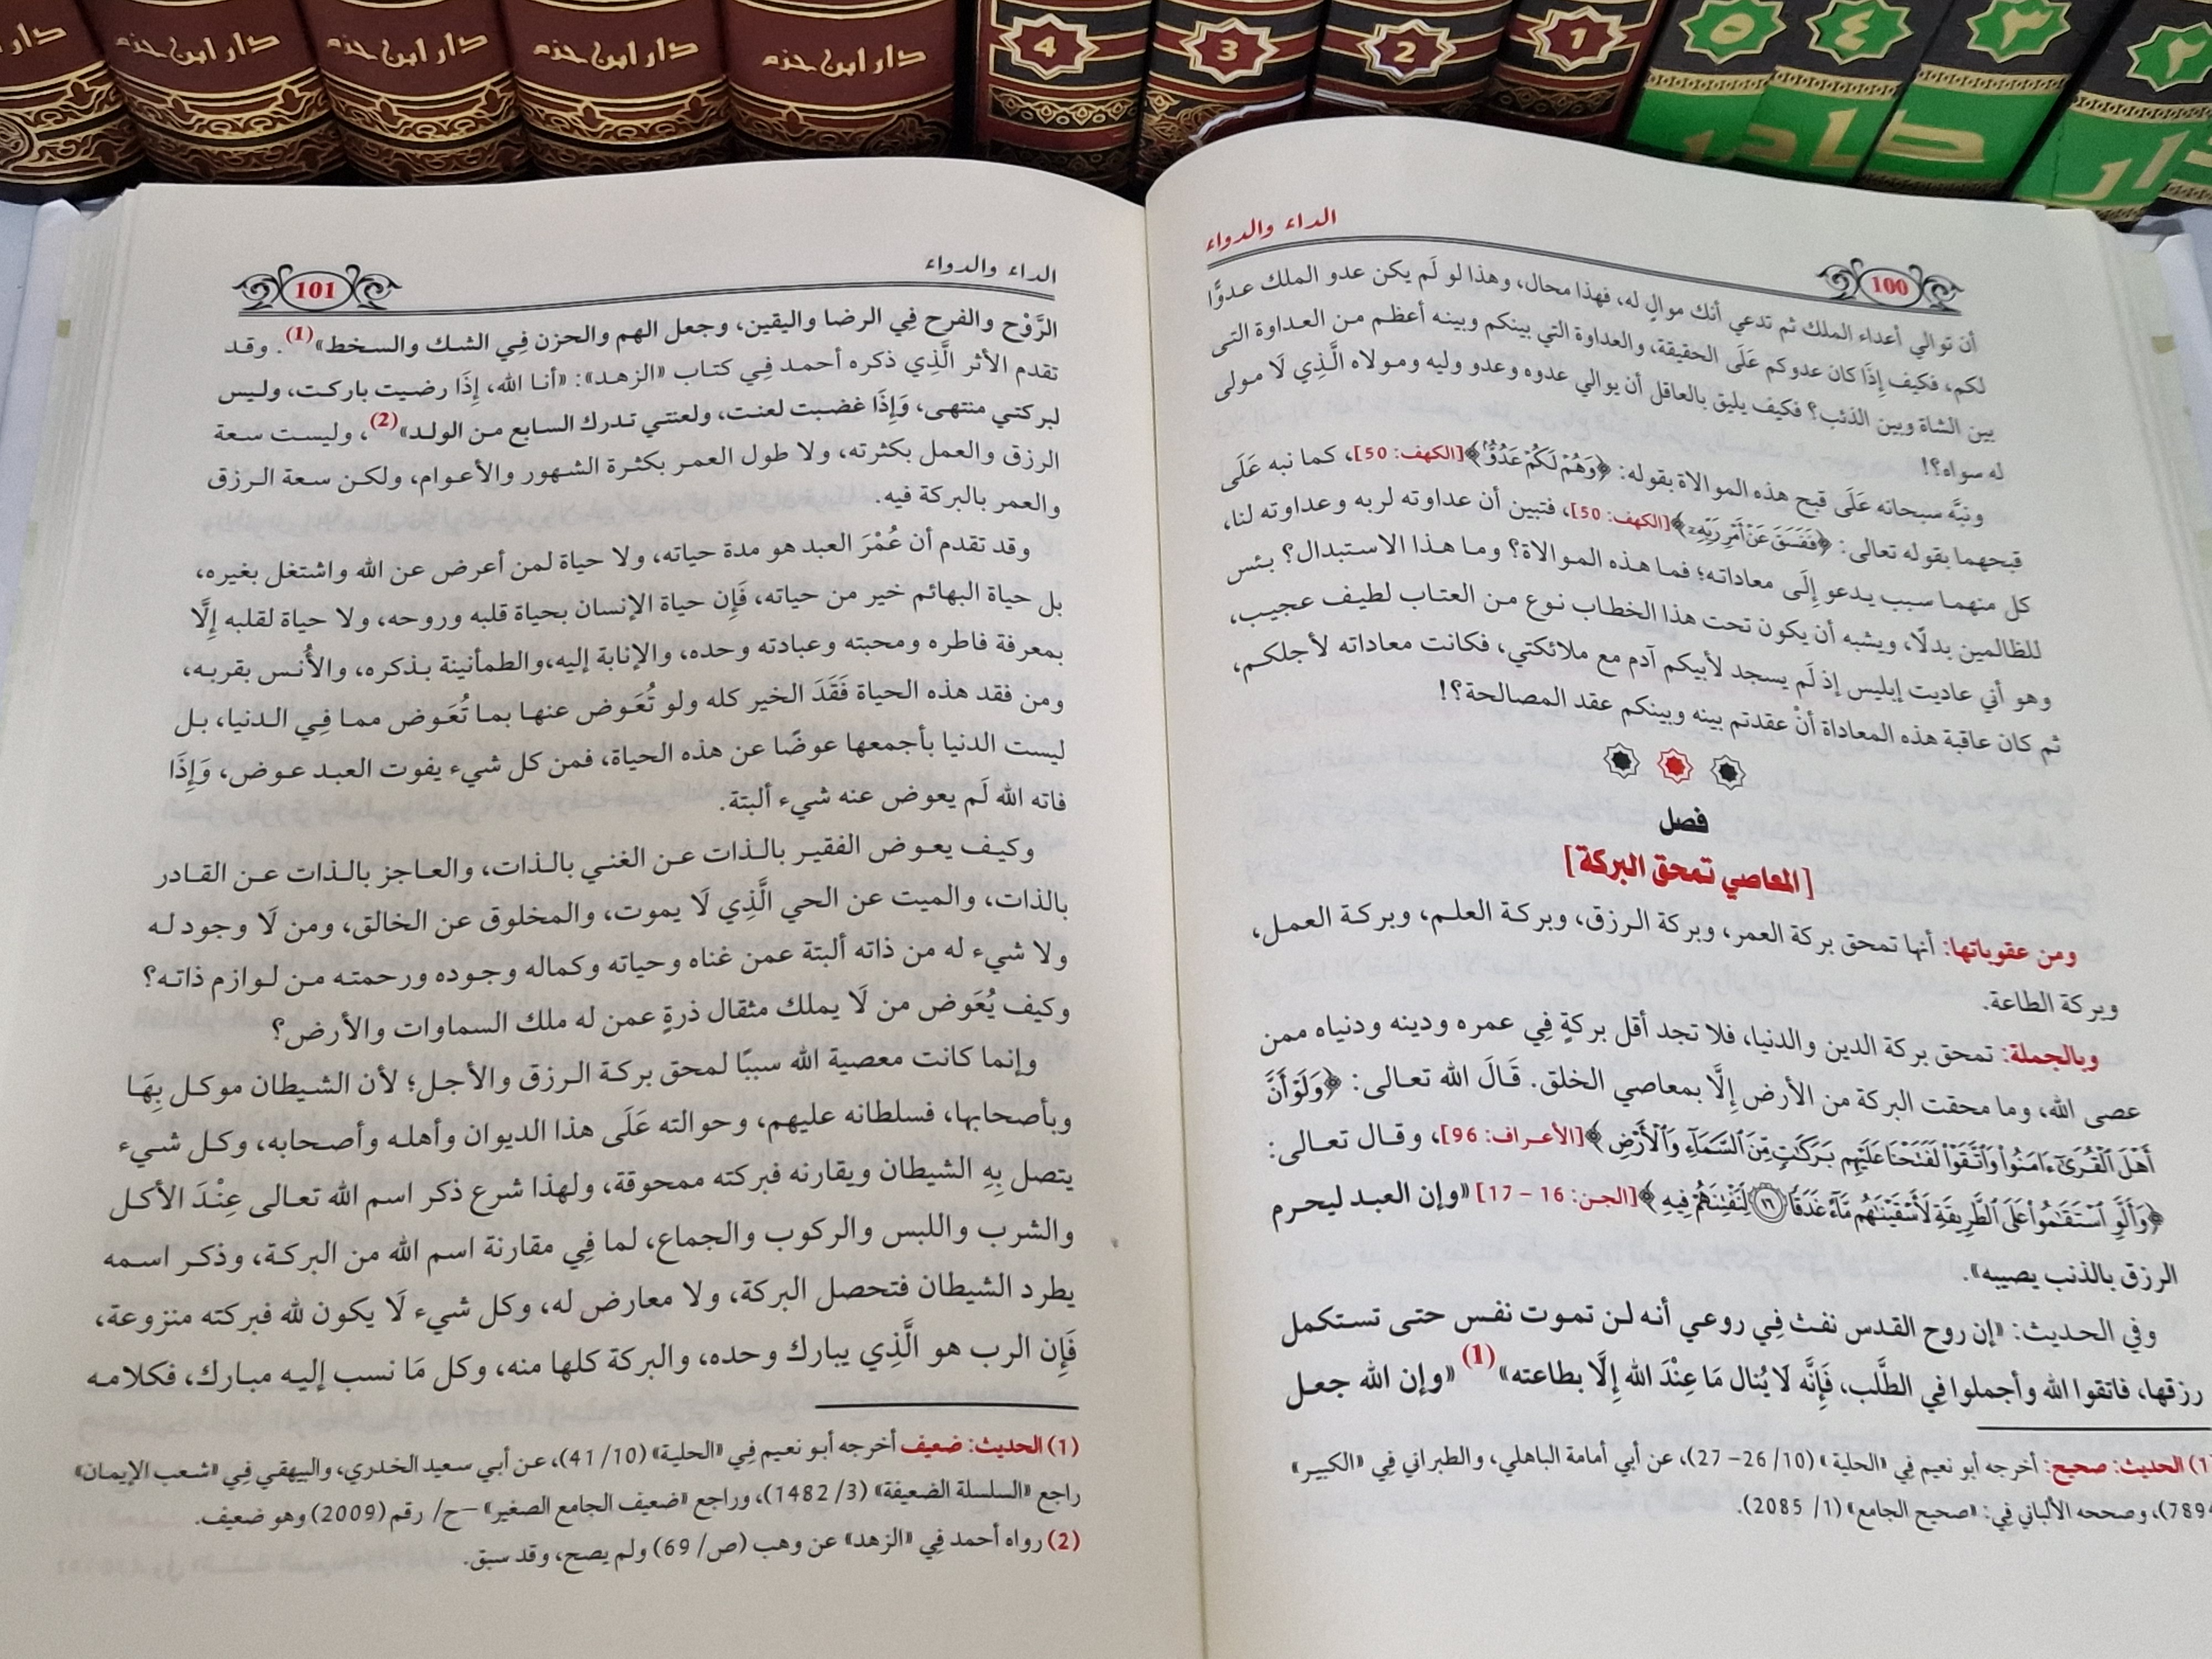 دار ابن حزم
دار ابن حزم
دار ابن حزم
دار ابن حزم
دار ابن حزم
4
3
2
1
٥
٤
٣
٢
دار
الداء والدواء
100
أن توالي أعداء الملك ثم تدعي أنك موالٍ له، فهذا محال، وهذا لو لَم يكن عدو الملك عدوًّا
لكم، فكيف إِذَا كان عدوكم عَلَى الحقيقة، والعداوة التي بينكم وبينه أعظم من العداوة التى
بين الشاة وبين الذئب؟ فكيف يليق بالعاقل أن يوالي عدوه وعدو وليه ومولاه الَّذِي لَا مولى
له سواه؟!
ونبَّه سبحانه عَلَى قبح هذه الموالاة بقوله: ﴿وَهُمْ لَكُمْ عَدُوٌّۢ﴾[الكهف: 50]، كما نبه عَلَى
قبحهما بقوله تعالى: ﴿فَفَسَقَ عَنْ أَمْرِ رَبِّهِۦٓ﴾[الكهف: 50]، فتبين أن عداوته لربه وعداوته لنا،
كل منهما سبب يدعو إِلَى معاداته؛ فما هذه الموالاة؟ وما هذا الاستبدال؟ بئس
للظالمين بدلًا، ويشبه أن يكون تحت هذا الخطاب نوع من العتاب لطيف عجيب،
وهو أني عاديت إبليس إذ لَم يسجد لأبيكم آدم مع ملائكتي، فكانت معاداته لأجلكم،
ثم كان عاقبة هذه المعاداة أنْ عقدتم بينه وبينكم عقد المصالحة؟!
فصل
[المعاصي تمحق البركة]
ومن عقوباتها: أنها تمحق بركة العمر، وبركة الرزق، وبركة العلم، وبركة العمل،
وبركة الطاعة.
وبالجملة: تمحق بركة الدين والدنيا، فلا تجد أقل بركةٍ فِي عمره ودينه ودنياه ممن
عصى الله، وما محقت البركة من الأرض إِلَّا بمعاصي الخلق. قَالَ الله تعالى: ﴿وَلَوْ أَنَّ
أَهْلَ ٱلْقُرَىٰٓ ءَامَنُوا۟ وَٱتَّقَوْا۟ لَفَتَحْنَا عَلَيْهِم بَرَكَٰتٍ مِّنَ ٱلسَّمَآءِ وَٱلْأَرْضِ﴾[الأعراف: 96]، وقال تعالى:
﴿وَأَلَّوِ ٱسْتَقَٰمُوا۟ عَلَى ٱلطَّرِيقَةِ لَأَسْقَيْنَٰهُم مَّآءً غَدَقًا ١٦ لِّنَفْتِنَهُمْ فِيهِ﴾[الجن: 16 – 17] «وإن العبد ليحرم
الرزق بالذنب يصيبه».
وفي الحديث: «إن روح القدس نفث فِي روعي أنه لن تموت نفس حتى تستكمل
رزقها، فاتقوا الله وأجملوا فِي الطَّلب، فَإِنَّه لَا يُنال مَا عِنْدَ الله إِلَّا بطاعته»(1) «وإن الله جعل
1) الحديث: صحيح: أخرجه أبو نعيم فِي «الحلية» (10/ 26– 27)، عن أبي أمامة الباهلي، والطبراني فِي «الكبير»
)، وصححه الألباني فِي: «صحيح الجامع» (1/ 2085).
الداء والدواء
101
الرَّوْح والفرح فِي الرضا واليقين، وجعل الهم والحزن فِي الشك والسخط»(1). وقد
تقدم الأثر الَّذِي ذكره أحمد فِي كتاب «الزهد»: «أنا الله، إِذَا رضيت باركت، وليس
لبركتي منتهى، وَإِذَا غضبت لعنت، ولعنتي تدرك السابع من الولد»(2)، وليست سعة
الرزق والعمل بكثرته، ولا طول العمر بكثرة الشهور والأعوام، ولكن سعة الرزق
والعمر بالبركة فيه.
وقد تقدم أن عُمْرَ العبد هو مدة حياته، ولا حياة لمن أعرض عن الله واشتغل بغيره،
بل حياة البهائم خير من حياته، فَإِن حياة الإنسان بحياة قلبه وروحه، ولا حياة لقلبه إِلَّا
بمعرفة فاطره ومحبته وعبادته وحده، والإنابة إليه،والطمأنينة بذكره، والأُنس بقربه،
ومن فقد هذه الحياة فَقَدَ الخير كله ولو تُعَوض عنها بما تُعَوض مما فِي الدنيا، بل
ليست الدنيا بأجمعها عوضًا عن هذه الحياة، فمن كل شيء يفوت العبد عوض، وَإِذَا
فاته الله لَم يعوض عنه شيء ألبتة.
وكيف يعوض الفقير بالذات عن الغني بالذات، والعاجز بالذات عن القادر
بالذات، والميت عن الحي الَّذِي لَا يموت، والمخلوق عن الخالق، ومن لَا وجود له
ولا شيء له من ذاته ألبتة عمن غناه وحياته وكماله وجوده ورحمته من لوازم ذاته؟
وكيف يُعَوض من لَا يملك مثقال ذرةٍ عمن له ملك السماوات والأرض؟
وإنما كانت معصية الله سببًا لمحق بركة الرزق والأجل؛ لأن الشيطان موكل بِهَا
وبأصحابها، فسلطانه عليهم، وحوالته عَلَى هذا الديوان وأهله وأصحابه، وكل شيء
يتصل بِهِ الشيطان ويقارنه فبركته ممحوقة، ولهذا شرع ذكر اسم الله تعالى عِنْدَ الأكل
والشرب واللبس والركوب والجماع، لما فِي مقارنة اسم الله من البركة، وذكر اسمه
يطرد الشيطان فتحصل البركة، ولا معارض له، وكل شيء لَا يكون لله فبركته منزوعة،
فَإِن الرب هو الَّذِي يبارك وحده، والبركة كلها منه، وكل مَا نسب إليه مبارك، فكلامه
(1) الحديث: ضعيف أخرجه أبو نعيم فِي «الحلية» (10/ 41)، عن أبي سعيد الخدري، والبيهقي فِي «شعب الإيمان»
راجع «السلسلة الضعيفة» (3/ 1482)، وراجع «ضعيف الجامع الصغير» –ح/ رقم (2009) وهو ضعيف.
(2) رواه أحمد فِي «الزهد» عن وهب (ص/ 69) ولم يصح، وقد سبق.